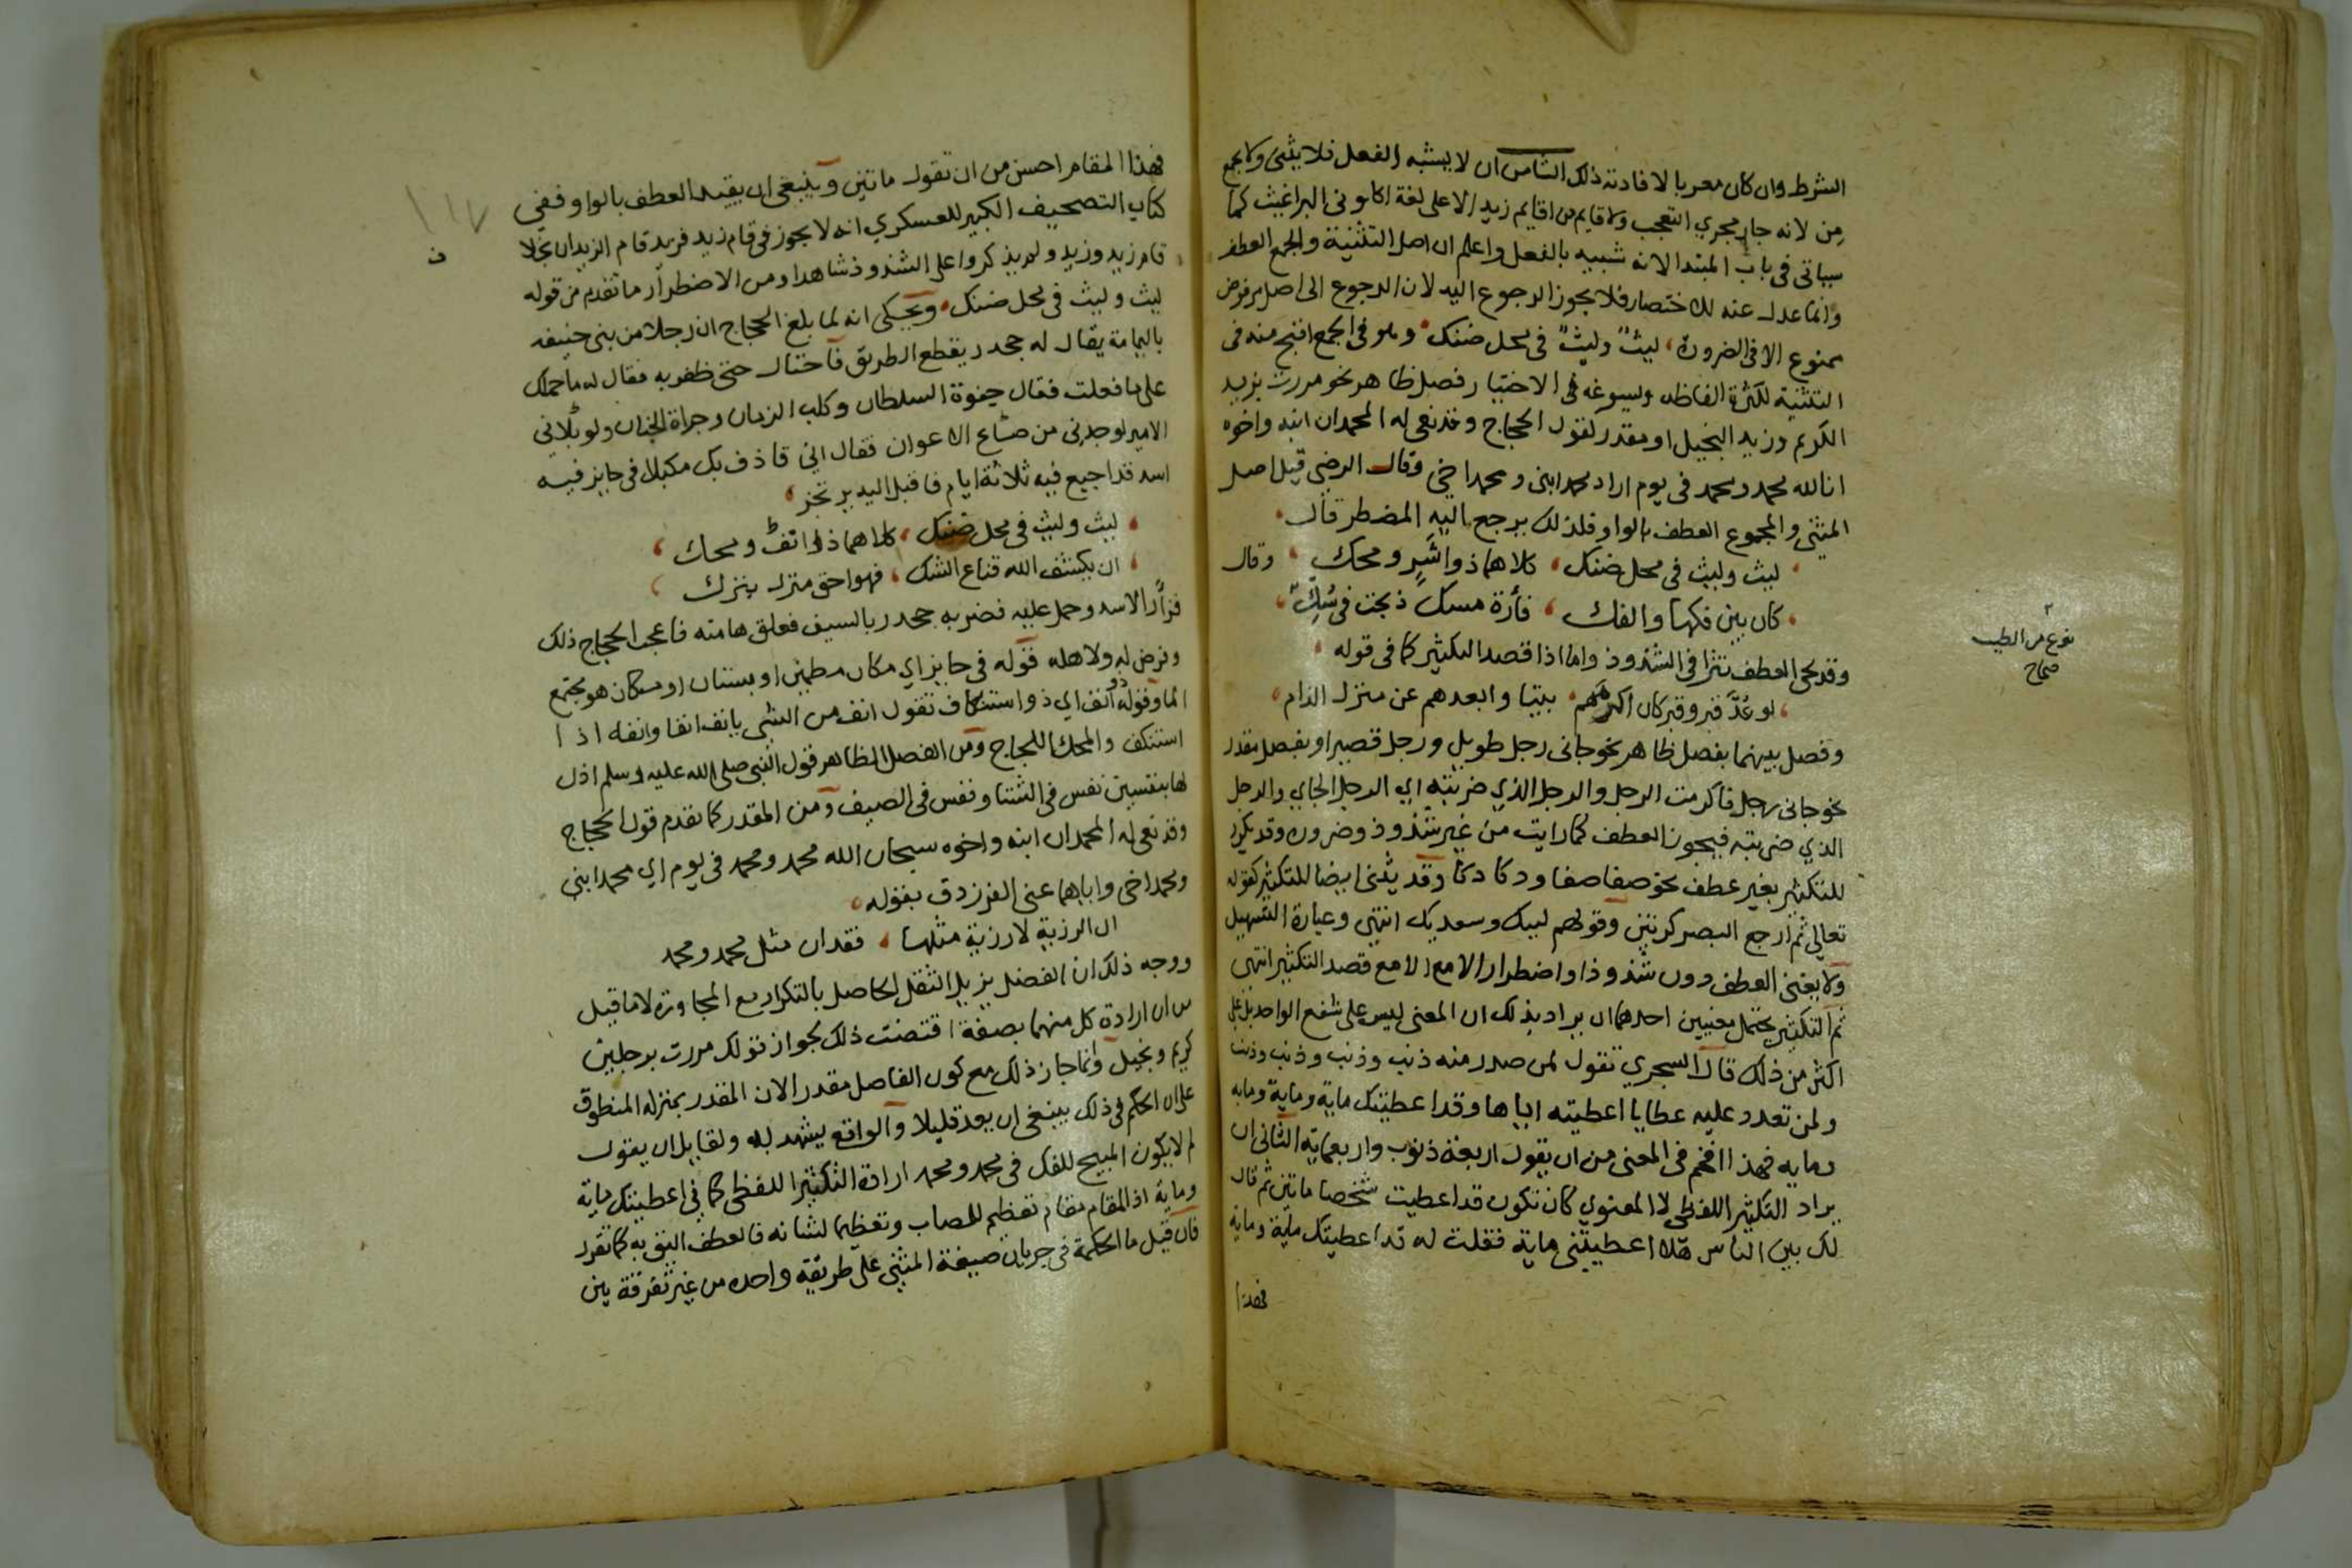 الشرط وان كان معربا لا فادته ذلك الثامن ان لا يشبه الفعل فلا يثنى ولا يجمع
من لانه جار مجري التعجب ولا قايم من اقايم زيد الا على لغة اكلوني البراغيث كما
سياتى فى باب المبتدا لانه شبيه بالفعل واعلم ان اصل التثنية والجمع العطف
وانما عدل عنه للاختصار فلا يجوز الرجوع اليه لان الرجوع الى اصل مرفوض
ممنوع الا فى الضرورة، ليثٌ وليثٌ فى محل ضنك وهو فى الجمع اقبح منه فى
التثنية لكثرة الفاظه ويسوغه فى الاختيار فصل ظاهر نحو مررت بزيد
الكريم وزيد البخيل او مقدر كقول الحجاج وقد نعى له المحمدان ابنه واخوه
انا لله محمد ومحمد فى يوم اراد محمد ابنى ومحمد اخي وقال الرضي قيل اصل
المثنى والمجموع العطف بالواو فلذلك يرجع اليه المضطر قال
ليث وليث فى محل ضنك، كلاهما ذو اشر ومحك، وقال
كان بين فكها والفك، فأرة مسك ذبحت فى سُكّ،
نوع من الطيب
صحاح
وقد يجي العطف نثرا فى الشذوذ واما اذا قصد التكثير كما فى قوله
، لو عُدَّ قبر وقبر كان اكرمهم، بيتا وابعدهم عن منزل الذام
وفصل بينهما بفصل ظاهر نحو جانى رجل طويل ورجل قصير او بفصل مقدر
نحو جانى رجل فاكرمت الرجل والرجل الذي ضربته اي الرجل الجاي والرجل
الذي ضربته فيجوز العطف كما رايت من غير شذوذ وضروره وقد يكرر
للتكثير بغير عطف نحو صفا صفا ودكا دكا وقد يثنى ايضا للتكثير كقوله
تعالى ثم ارجع البصر كرتين وقولهم لبيك وسعديك انتهى وعبارة التسهيل
ولا يغنى العطف دون شذوذ او اضطرار الا مع الا مع قصد التكثير انتهى
ثم التكثير يحتمل معنيين احدهما ان يراد بذلك ان المعنى ليس على شفع الواحد بل على
اكثر من ذلك قال السجري تقول لمن صدر منه ذنب وذنب وذنب وذنب
ولمن تعدد عليه عطايا اعطيته اياها وقد اعطيتك ماية وماية ومايه
ومايه فهذا افخم فى المعنى من ان يقول اربعة ذنوب واربعمايه الثانى ان
يراد التكثير اللفظي لا المعنوي كان تكون قد اعطيت شخصا ماتين ثم قال
لك بين الناس هلا اعطيتني ماية فقلت له قد اعطيتك ماية وماية
فهذا
فهذا المقام احسن من ان تقول ماتين وينبغى ان يقيد العطف بالواو ففي
كتاب التصحيف الكبير للعسكري انه لا يجوز فى قام زيد فزيد قام الزيدان بخلا
ف
١١٧
قام زيد وزيد ولم يذكروا على الشذوذ شاهدا ومن الاضطرار ما تقدم من قوله
ليث وليث فى محل ضنك، ويحكى انه لما بلغ الحجاج ان رجلا من بنى حنيفه
باليمامة يقال له جحدر يقطع الطريق فاحتال حتى ظفر به فقال له ما حملك
على ما فعلت فقال جفوة السلطان وكلب الزمان وجراة الجنان ولو بلاني
الامير لوجدنى من صالح الاعوان فقال اني قاذف بك مكبلا فى حايز فيه
اسد قد اجيع فيه ثلاثة ايام فاقبل اليه يرتجز
ليث وليث فى محل ضنك، كلاهما ذو انف ومحك،
ان يكشف الله قناع الشك، فهو احق منزل بترك
فزأر الاسد وحمل عليه فضربه جحدر بالسيف ففلق هامته فاعجب الحجاج ذلك
وفرض له ولاهله قوله فى حايز اي مكان مطمئن او بستان او مكان هو مجتمع
الما وقوله ذو انف اي ذو استنكاف تقول انف من الشى يانف انفا وانفه اذا
استنكف والمحك اللجاج ومن الفصل الظاهر قول النبى صلى الله عليه وسلم اذن
لها بنفسين نفس فى الشتا ونفس فى الصيف ومن المقدر كما تقدم قول الحجاج
وقد نعى له المحمدان ابنه واخوه سبحان الله محمد ومحمد فى يوم اي محمد ابنى
ومحمد اخى واياهما عنى الفرزدق بقوله
ان الرزية لا رزية مثلها، فقدان مثل محمد ومحمد
ووجه ذلك ان الفصل يزيل الثقل الحاصل بالتكرار مع المجاورة لا ما قيل
من ان ارادة كل منهما بصفة اقتضت ذلك لجواز قولك مررت برجلين
كريم وبخيل وانما جاز ذلك مع كون الفاصل مقدر الان المقدر بمنزله المنطوق
على ان الحكم فى ذلك ينبغى ان يعد قليلا والواقع يشهد له ولقايل ان يقول
لم لا يكون المبيح للفك فى محمد ومحمد ارادة التكثير اللفظى كما فى اعطيتك ماية
وماية اذ المقام مقام تعظيم للمصاب وتعظيما لشانه فالعطف اليق به كما تقرر
فان قيل ما الحكمة فى جريان صيغة المثنى على طريقة واحده من غير تفرقة بين